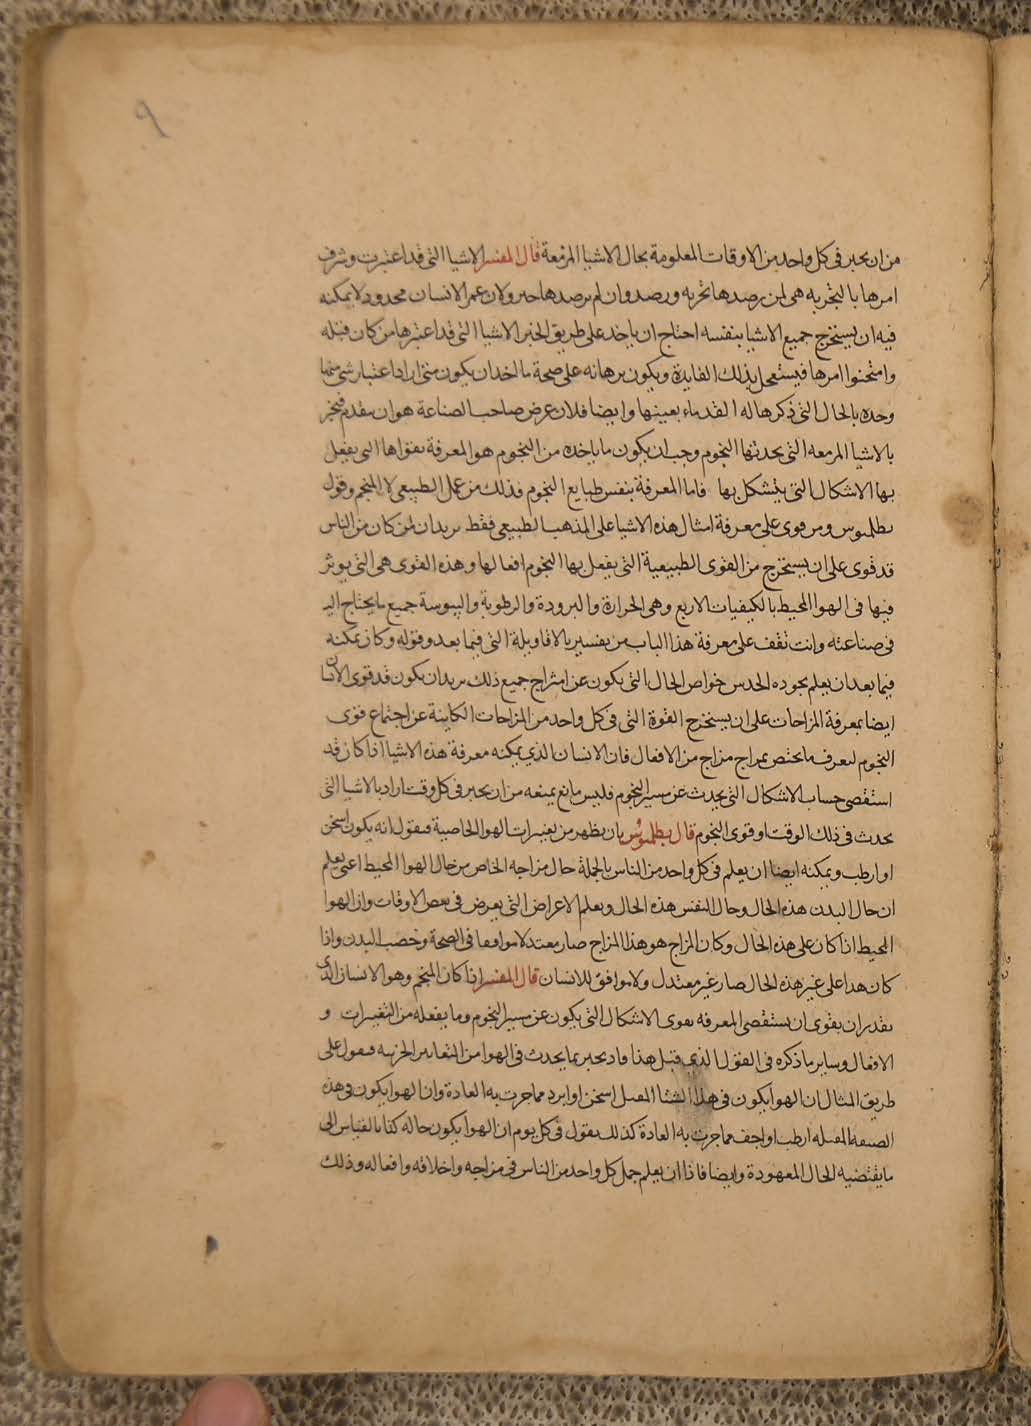 ٩
من ان يخبر في كل واحد من الاوقات المعلومة بحال الاشيا المزمعة قال المفسر الاشيا التي قد اعتبرت وعرف
امرها بالتجربه هي لمن رصدها تجربه ورصد وان لم يرصدها خبر ولان عمر الانسان محدود لا يمكنه
فيه ان يستخرج جميع الاشيا بنفسه احتاج ان ياخذ على طريق الخبر الاشيا التي قد اعتبرها من كان قبله
وامتحنوا امرها فيستعمل بذلك الفايدة ويكون برهانه على صحة ما اخذ ان يكون متى اراد اعتبار شي منها
وحده بالحال التي ذكرها له القدماء بعينها وايضا فلان غرض صاحب الصناعة هو ان يتقدم فيخبر
بالاشيا المزمعه التي يحدثها النجوم وجب ان يكون ما ياخذه من النجوم هو المعرفة بقواها التي يفعل
بها الاشكال التي يتشكل بها فاما المعرفة بنفس طبايع النجوم فذلك من عمل الطبيعي لا المنجم وقول
بطلميوس ومر قوى على معرفة امثال هذه الاشيا على المذهب الطبيعي فقط يريد ان من كان من الناس
قد قوى على ان يستخرج من القوى الطبيعية التي يفعل بها النجوم افعالها وهذه القوى هي التي يوثر
فيها في الهوا المحيط بالكيفيات الاربع وهي الحرارة والبرودة والرطوبة واليبوسة جميع ما يحتاج اليه
في صناعته وانت تقف على معرفة هذا الباب من تفسير بالاقاويلة التي فيما بعد وقوله وكان يمكنه
فيما بعد ان يعلم بجوده الحدس خواص الحال التي يكون عن امتزاج جميع ذلك يريد ان يكون قد قوى الانسان
ايضا بمعرفة المزاجات على ان يستخرج القوة التي في كل واحد من المزاجات الكاينة عن اجتماع قوى
النجوم ليعرف ما يختص بمزاج مزاج من الافعال فان الانسان الذي يمكنه معرفة هذه الاشيا اذا كان قد
استقصى حساب الاشكال التي يحدث عن مسير النجوم فليس مانع يمنعه من ان يخبر في كل وقت اراد بالاشيا التي
يحدث في ذلك الوقت او قوى النجوم قال بطلميوس بان يظهر من تغييرات الهوا الخاصية فيقول انه يكون اسخن
او ارطب ويمكنه ايضا ان يعلم في كل واحد من الناس بالجملة حال مزاجه الخاص من حال الهوا المحيط اعني يعلم
ان حال البدن هذه الحال وحال النفس هذه الحال ويعلم الاعراض التي يعرض في بعض الاوقات وان الهوا
المحيط اذا كان على هذه الحال وكان المزاج هو هذا المزاج صار معتدلا موافقا في الصحة وخصب البدن واذا
كان هذا على غير هذه الحال صار غير معتدل ولا موافق للانسان قال المفسر اذا كان المنجم وهو الانسان الذي
يقدر ان يقوى ان يستقصى المعرفه بقوى الاشكال التي يكون عن مسير النجوم وما يفعله من التغييرات و
الافعال وساير ما ذكره في القول الذي قبل هذا قادر يخبر بما يحدث في الهوا من التغايير الجزيه فيقول على
طريق المثال ان الهوا يكون في هذا الشتا المقبل اسخن او ابرد مما جرت به العادة وان الهوا يكون في هذه
الصيفه المقبله ارطب او اجف مما جرت به العادة كذلك يقول في كل يوم ان الهوا يكون حاله كذا بالقياس الى
ما يقتضيه الحال المعهودة وايضا فاذا ان يعلم جمل كل واحد من الناس في مزاجه واخلاقه وافعاله وذلك